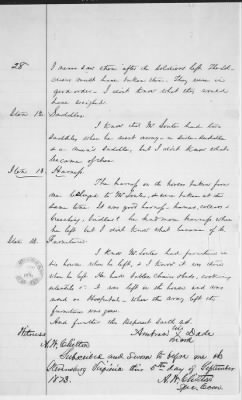 28 I never saw them after the soldiers left. The sold-
iers must have taken them. They were in
good order. I don't know what they would
have weighed.
Item 12. Saddles.
I know that Mr Souter had two
saddles when he went away - a side-saddle
& a man's saddle, but I don't know what
became of them
Item 13. Harness.
The harness on the horses taken from
me belonged to Mr Souter, & was taken at the
same time. It was good harness, hames, collars &
breeching, bridles & he had more harness when
he left but I don't know what became of it.
Item 14. Furniture
I know Mr Souter had furniture in
his house when he left, & I know it was there
when he left. He had tables, chairs, beds, cooking
utensils &c. It was left in the house and was
used as Hospital - when the army left the
furniture was gone.
And further the Deponent saith not.
Witness
his
Ambrose X Dade
mark
A. W. Chilton
Subscribed and Sworn to before me at
this 5th day of September
1873.
A. W. Chilton
Spec. Com.